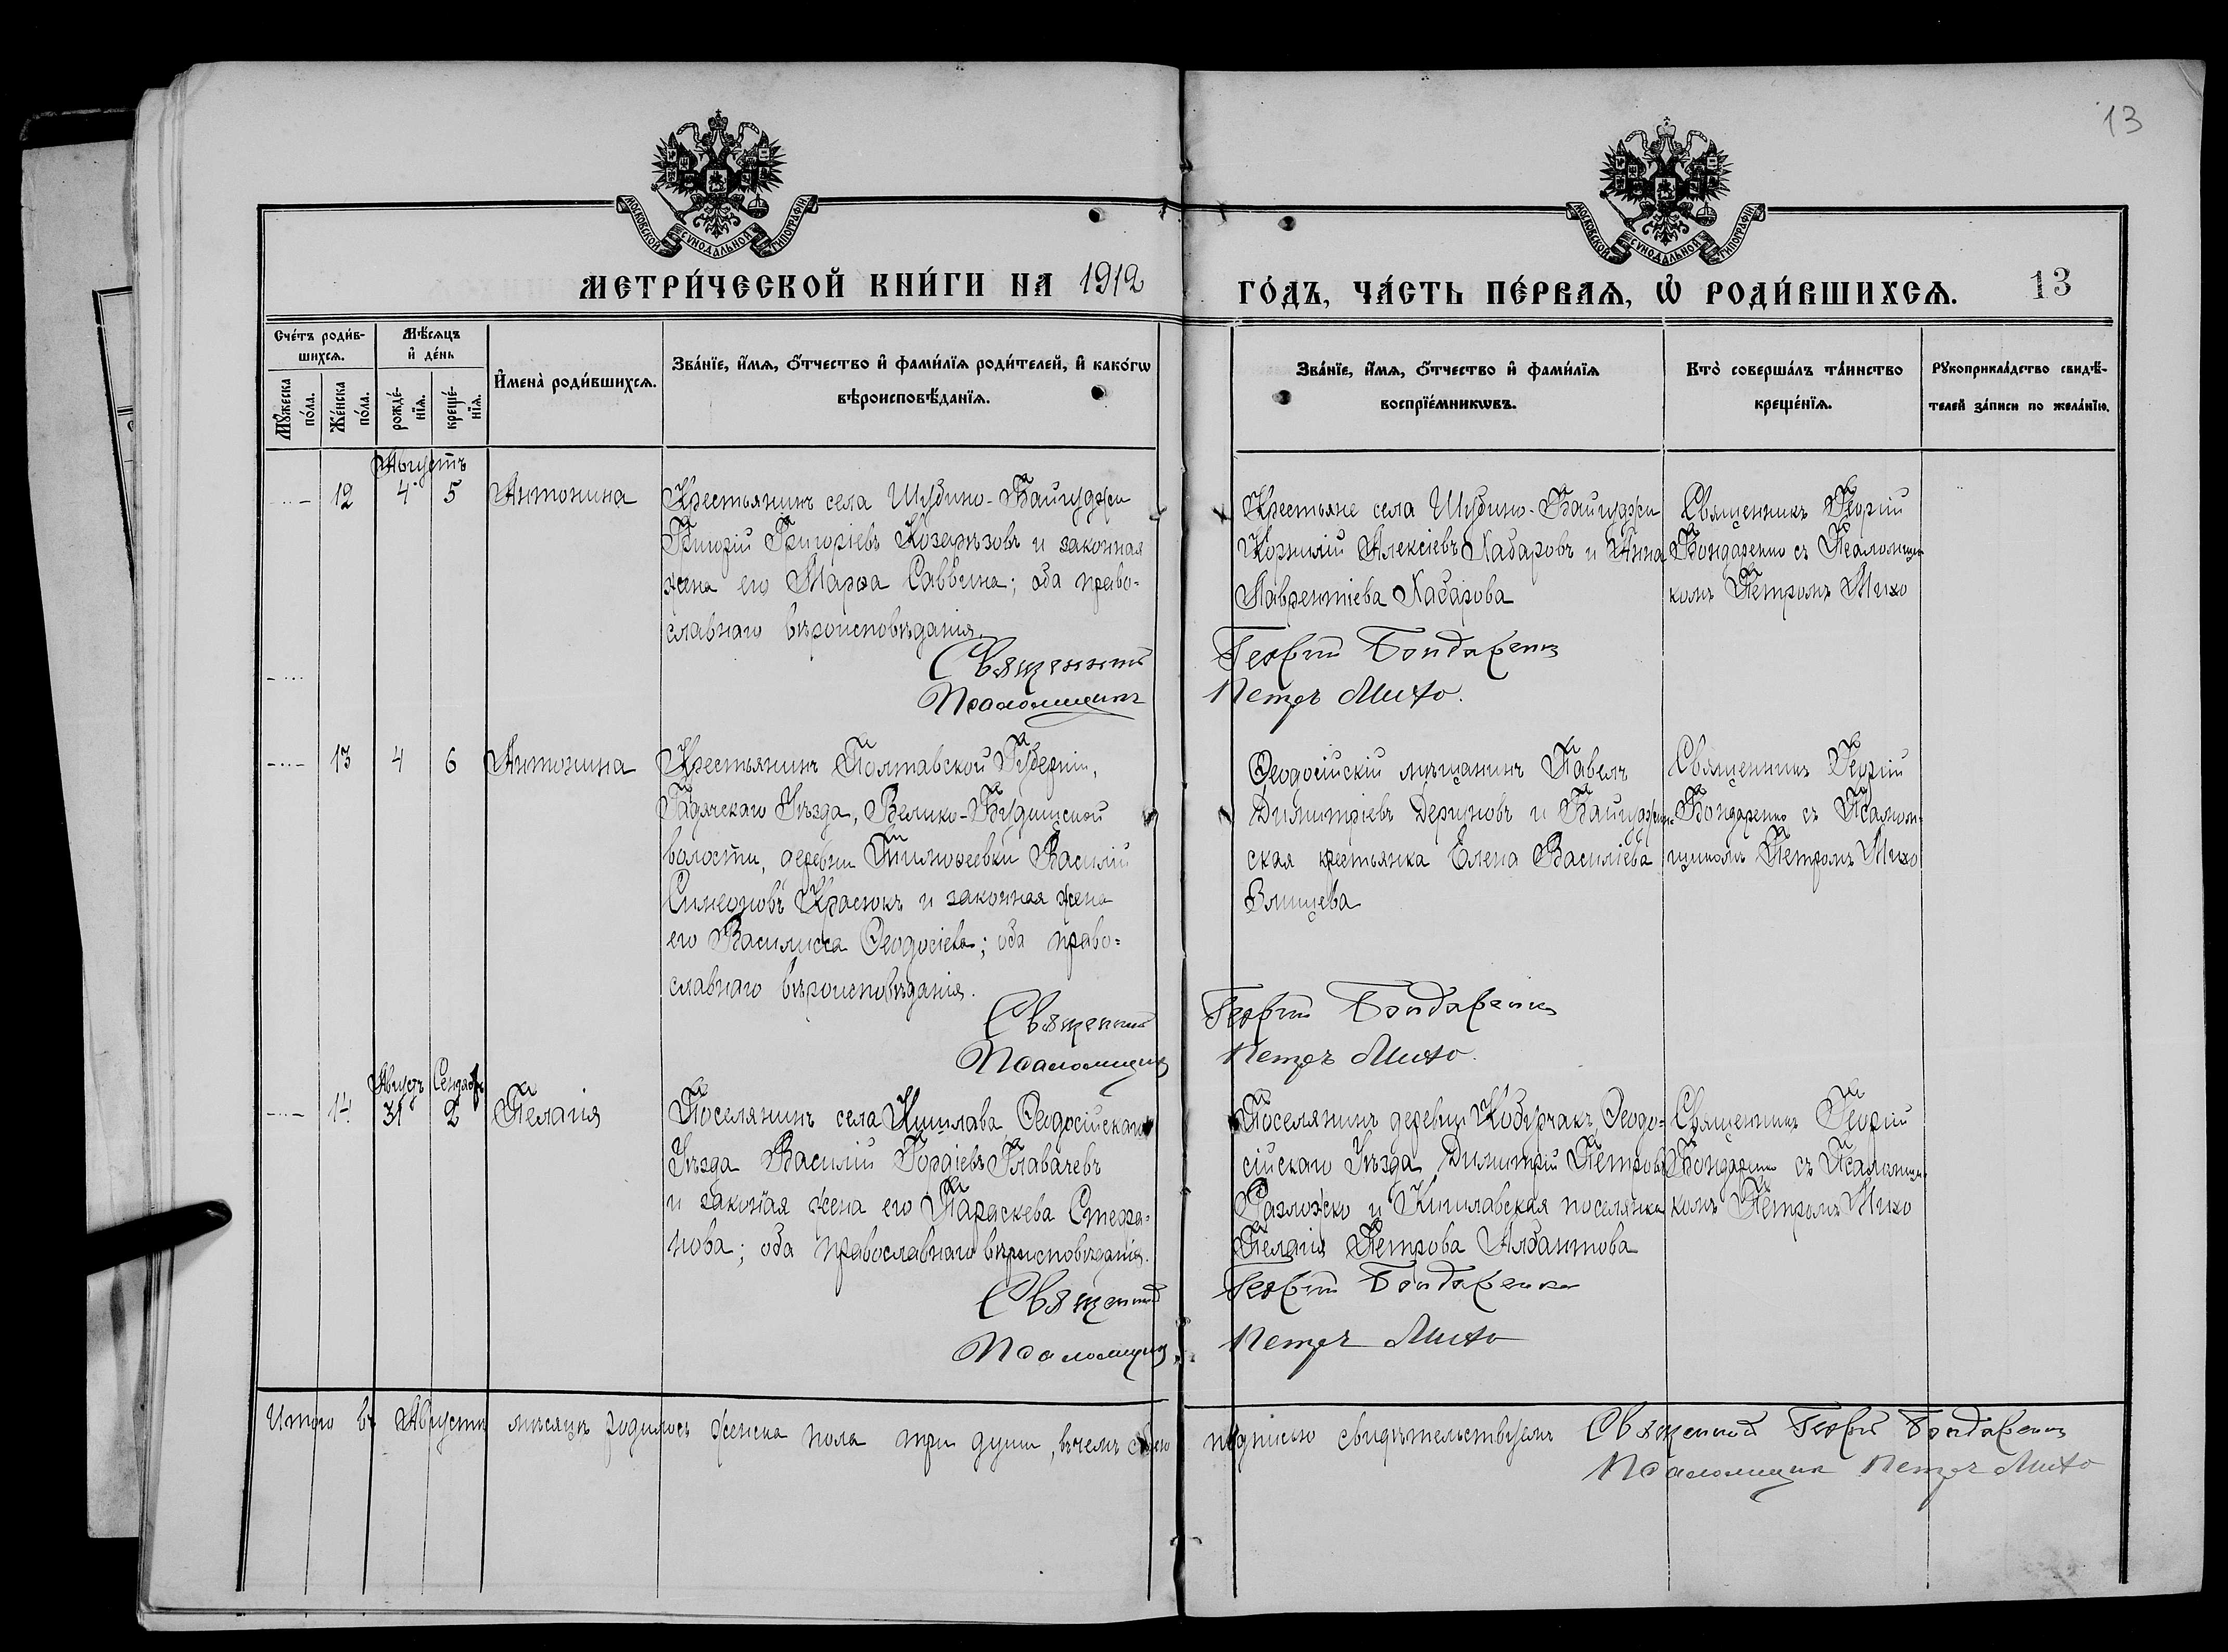 13
МОСКОВСКОЙ СѴНОДАЛЬНОЙ ТИПОГРАФІИ
МОСКОВСКОЙ СѴНОДАЛЬНОЙ ТИПОГРАФІИ
МЕТРИ́ЧЕСКОЙ КНИ́ГИ НА 1912 ГО́ДЪ, ЧА́СТЬ ПЕ́РВАѦ, Ѡ РОДИ́ВШИХСѦ. 13
Сче́тъ роди́в-
шихсѧ.
Мꙋ́жеска
по́ла.
Же́нска
по́ла.
Мѣ́сѧцъ
и҆ де́нь
рожде́-
нїѧ.
креще́-
нїѧ.
И҆мена̀ роди́вшихсѧ.
Зва́нїе, и҆́мѧ, ѻ҆́тчество и҆ фами́лїѧ роди́телей, и҆ како́гѡ
вѣроисповѣ́данїѧ.
Зва́нїе, и҆́мѧ, ѻ҆́тчество и҆ фами́лїѧ
воспрїе́мникѡвъ.
Кто̀ соверша́лъ та́инство
креще́нїѧ.
Рꙋкоприкла́дство свидѣ́-
телей за́писи по жела́нїю.
Августъ
12 4 5 Антонина
Крестьянинъ села Шубино-Байгуджи
Григорій Григоріевъ Козарѣзовъ и законная
жена его Марѳа Саввина; оба право-
славнаго вѣроисповѣданія.
Крестьяне села Шубино-Байгуджи
Корнилій Алексіевъ Хабаровъ и Анна
Лаврентіева Хабарова
Священникъ Георгій
Бондаренко съ Псаломщи-
комъ Петромъ Михо
Священникъ Георгій Бондаренко
Псаломщикъ Петръ Михо.
13 4 6 Антонина
Крестьянинъ Полтавской Губерніи,
Гадячскаго Уѣзда, Велико-Будищской
волости, деревни Тимоѳеевки Василій
Симеоновъ Красюкъ и законная жена
его Василисса Ѳеодосіева; оба право-
славнаго вѣроисповѣданія.
Ѳеодосійскій мѣщанинъ Павелъ
Димитріевъ Дериновъ и Байгуджин-
ская крестьянка Елена Василіева
Священникъ Георгій
Бондаренко съ Псалом-
щикомъ Петромъ Михо
Священникъ Георгій Бондаренко
Псаломщикъ Петръ Михо.
Августъ Сентябрь
14 31 2 Пелагія
Поселянинъ села Кишлава Ѳеодосійскаго
Уѣзда Василій Гордіевъ Главачевъ
и законная жена его Параскева Стефа-
нова; оба православнаго вѣроисповѣданія.
Поселянинъ деревни Кобурчакъ, Ѳеодо-
сійскаго Уѣзда Димитрій Петровъ
Разложко и Кишлавская поселянка
Пелагія Петрова Арбантова
Священникъ Георгій
Бондаренко съ Псаломщи-
комъ Петромъ Михо
Священникъ Георгій Бондаренко
Псаломщикъ Петръ Михо
Итого въ Августѣ мѣсяцѣ родилось женска пола три души, въ чемъ свою подписью свидѣтельствуемъ Священникъ Георгій Бондаренко
Псаломщикъ Петръ Михо